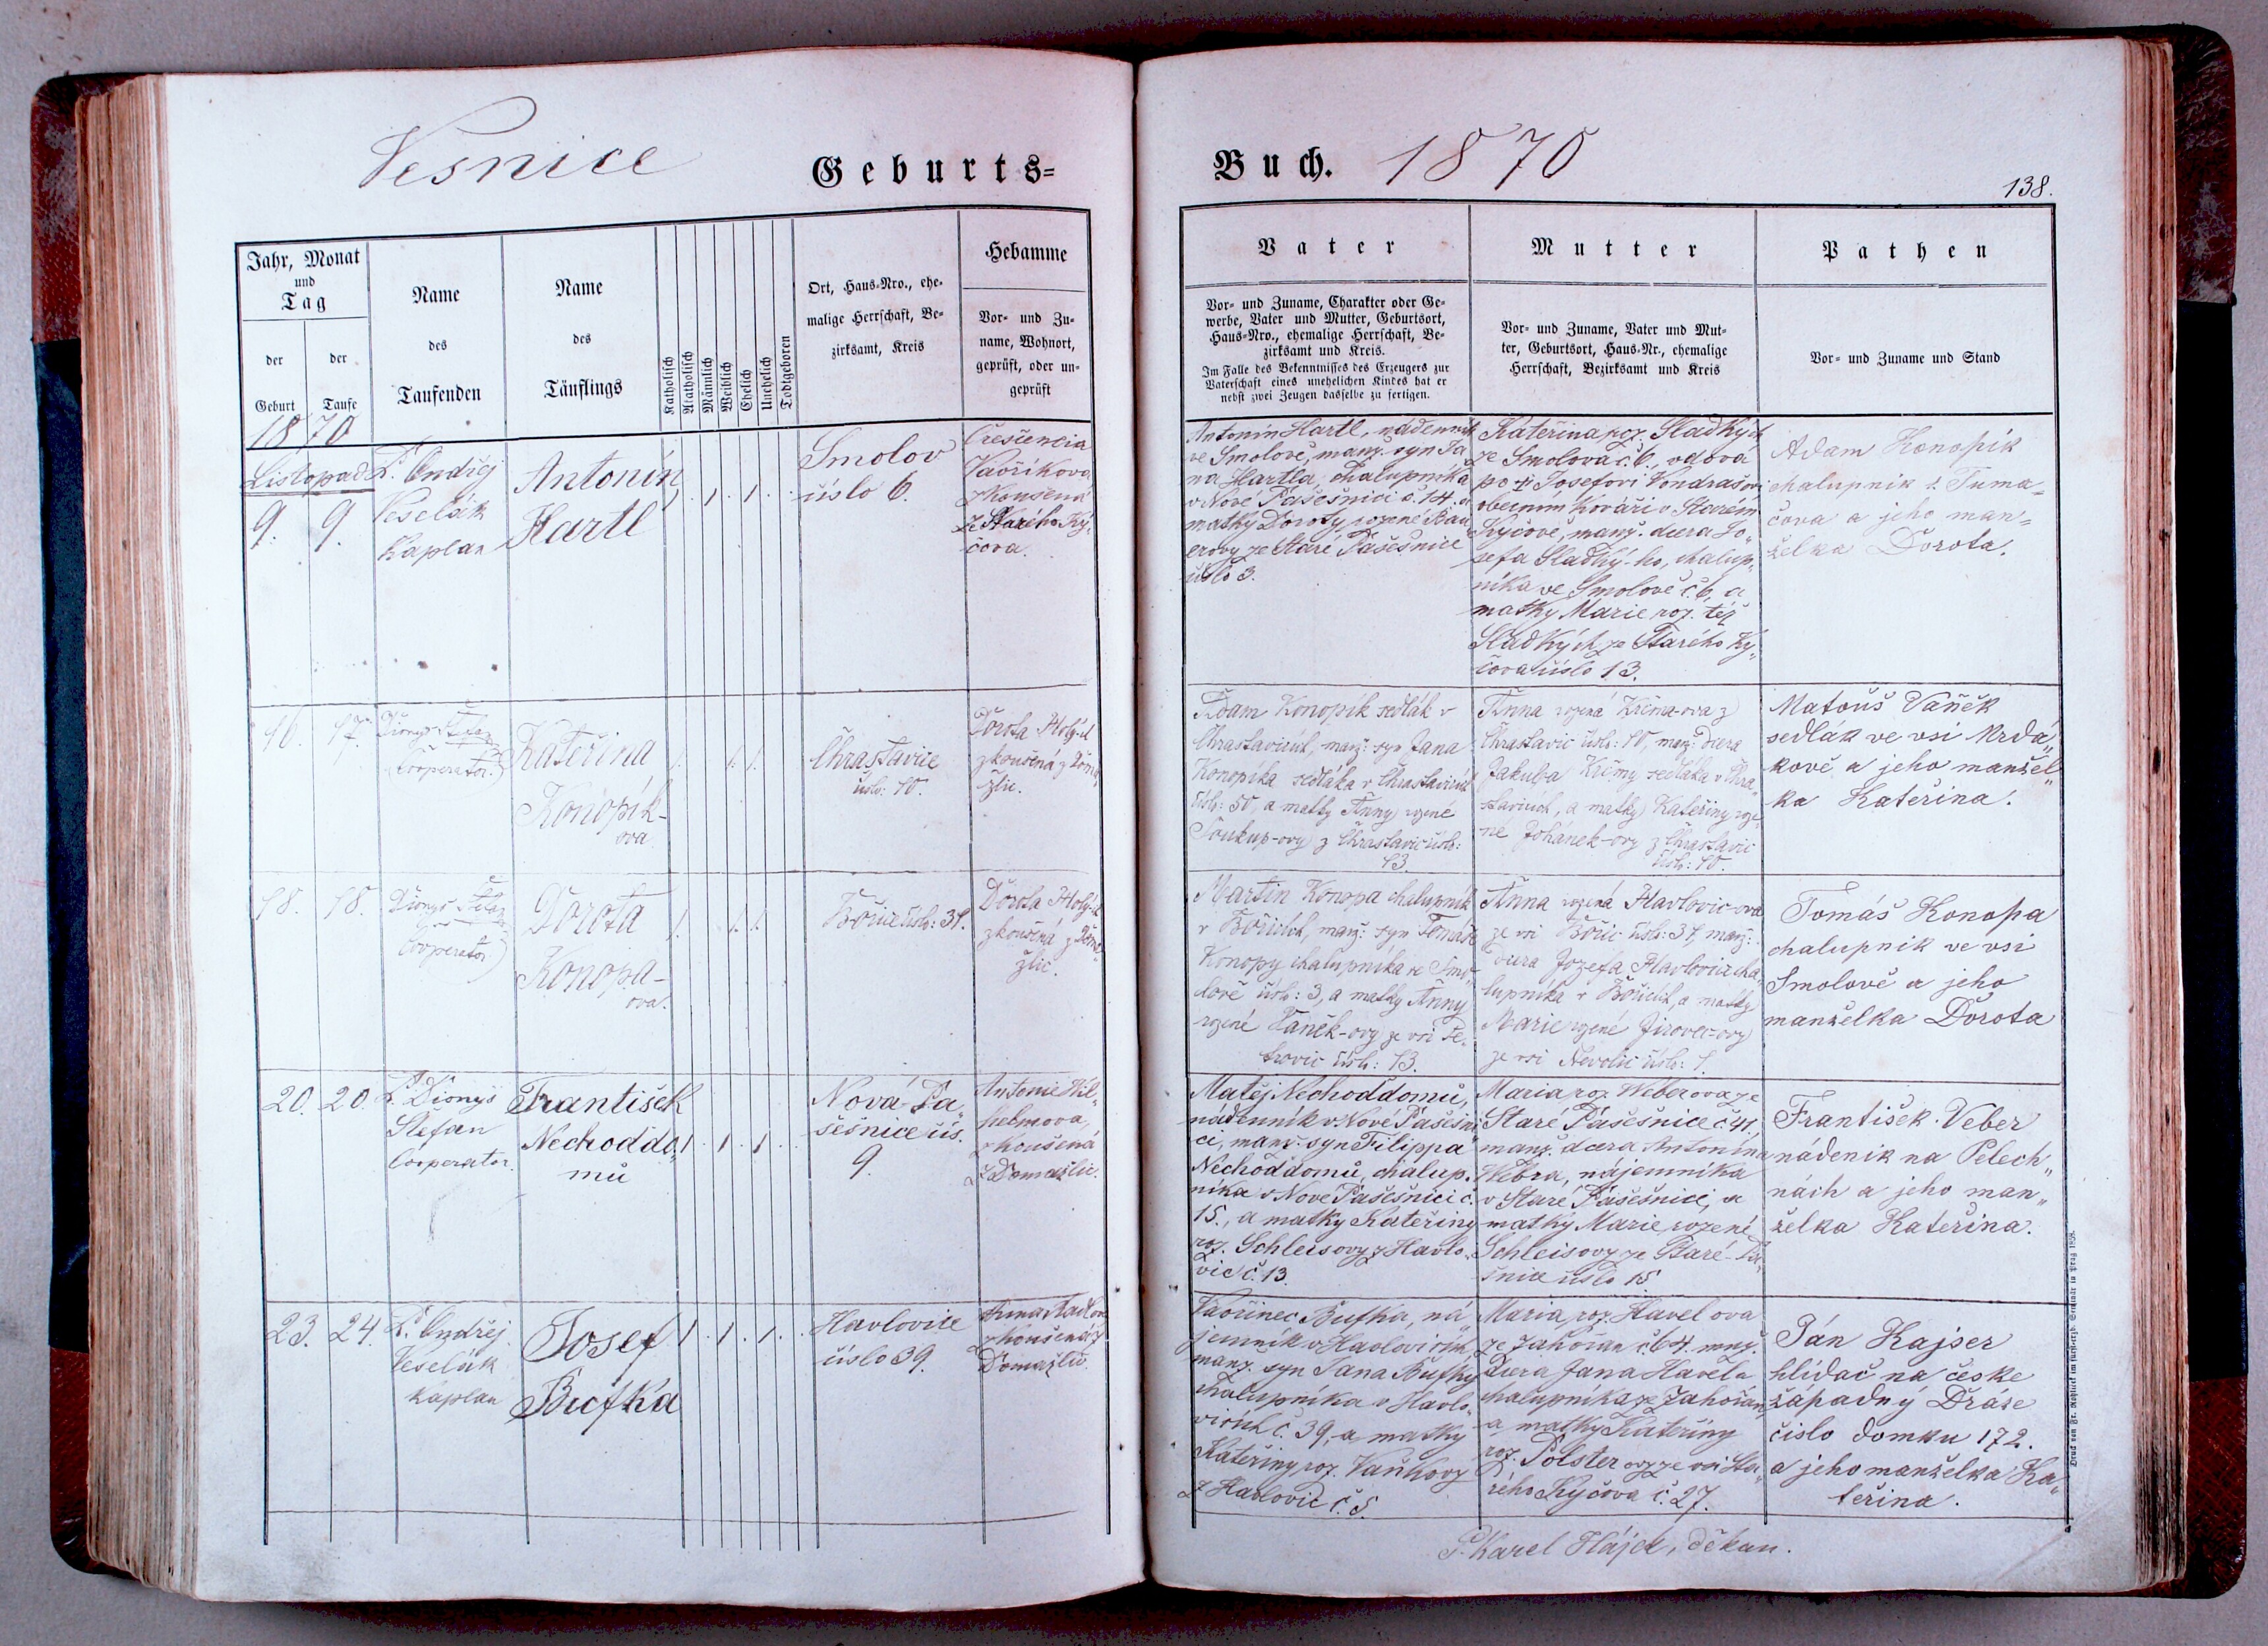 Vesnice
Geburts-
Buch.
1870
138.
Jahr, Monat
und
Tag
der
Geburt
der
Taufe
Name
des
Taufenden
Name
des
Täuflings
Katholisch
Akatholisch
Männlich
Weiblich
Ehelich
Unehelich
Todtgeboren
Ort, Haus-Nro., ehe-
malige Herrschaft, Be-
zirksamt, Kreis
Hebamme
Vor- und Zu-
name, Wohnort,
geprüft, oder un-
geprüft
Vater
Vor- und Zuname, Charakter oder Ge-
werbe, Vater und Mutter, Geburtsort,
Haus-Nro., ehemalige Herrschaft, Be-
zirksamt und Kreis.
Im Falle des Bekenntnisses des Erzeugers zur
Vaterschaft eines unehelichen Kindes hat er
nebst zwei Zeugen dasselbe zu fertigen.
Mutter
Vor- und Zuname, Vater und Mut-
ter, Geburtsort, Haus-Nr., ehemalige
Herrschaft, Bezirksamt und Kreis
Pathen
Vor- und Zuname und Stand
1870
Listopad
9. 9.
P. Ondřej
Veselák
Kaplan
Antonín
Hartl
1. 1. 1.
Smolov
číslo 6.
Crescencia
Vavříkova
zkoušená
ze Starého Ký-
čova.
Antonín Hartl, nádenník
ve Smolově, manž. syn Ja
na Hartla, chalupníka
v Nové Pasešnici č. 14. a
matky Doroty rozené Bau
erovy ze Staré Pasešnice
číslo 3.
Kateřina roz. Sladkých
ze Smolova č. 6., vdova
po † Josefovi Vondrašovi
obecním Kováři v Starém
Kyčově, manž. dcera Jo„
sefa Sladký-ho, chalup„
níka ve Smolově č. 6, a
matky Marie roz. též
Sladkých ze Starého Ky„
čova číslo 13.
Adam Konopík
chalupník z Tuma-
čova a jeho man-
želka Dorota.
16. 17.
Dionys Štefan
Cooperator.
Kateřina
Konopík-
ova
1. 1. 1.
Chrastavice
číslo: 10.
Dorota Holých
zkoušená z Doma„
žlic.
Adam Konopík sedlák v
Chrastavicích, manž: syn Jana
Konopíka sedláka v Chrastavicích
číslo: 30, a matky Anny rozené
Soukup-ovy z Chrastavic číslo:
13.
Anna rozená Křema-ova z
Chrastavic číslo: 10, manž: dcera
Jakuba Křemy sedláka v Chra„
stavicích, a matky Kateřiny roze-
né Johánek-ovy z Chrastavic
číslo: 10.
Matouš Vaněk
sedlák ve vsi Mrdá„
kově a jeho manžel„
ka Kateřina.
18. 18.
Dionys Štefan
Cooperator.
Dorota
Konopa-
ova.
1. 1. 1.
Bořice číslo: 31.
Dorota Holých
zkoušená z Doma„
žlic.
Martin Konopa chalupník
v Bořicích, manž: syn Tomáše
Konopy chalupníka ve Smo„
lově číslo: 3, a matky Anny
rozené Vaněk-ovy ze vsi Pe„
trovic číslo: 13.
Anna rozená Havlovic-ova
ze vsi Bořic číslo: 31, manž:
dcera Jozefa Havlovic cha„
lupníka v Bořicích, a matky
Marie rozené Jírovec-ovy
ze vsi Nevolic číslo: 1.
Tomáš Konopa
chalupník ve vsi
Smolově a jeho
manželka Dorota
20. 20.
P. Dionys
Štefan
Cooperator.
František
Nechoddo„
mů
1. 1. 1.
Nová-Pa„
sešnice čís.
9.
Antonie Vil-
helmova,
zkoušená
z Domažlic.
Matěj Nechoddomů,
nádenník v Nové Pasešni
ci, manž. syn Filippa
Nechoddomů, chalup.
níka v Nové Pasešnici č.
15., a matky Kateřiny
roz. Schleisovy z Havlo„
vic č. 13.
Maria roz. Weberova ze
Staré Pasešnice č. 41,
manž. dcera Antonína
Webra, nájemníka
v Staré Pasešnici, a
matky Marie, rozené
Schleisovy ze Staré-Pa„
šnice číslo 15
František Veber
nádenik na Pelech„
nách a jeho man„
želka Kateřina.
23. 24.
P. Ondřej
Veselák
Kaplan
Josef
Bufka
1. 1. 1.
Havlovice
číslo 39.
zkoušená z
Domažlic.
Vavřinec Bufka, ná„
jemník v Havlovicích,
manž. syn Jana Bufky
chalupníka v Havlo„
vicích č. 39, a matky
Kateřiny roz. Vaňkovy
z Havlovic č. 5.
Maria roz. Havel ova
ze Zahořan č. 64. manž.
dcera Jana Havela
chalupníka ze Zahořan,
a matky Kateřiny
roz. Polster ovy ze vsi Sta„
rého Kyčova č. 27.
Pán Kajser
hlídač na české
západný Dráze
číslo domku 172.
a jeho manželka Ka„
teřina.
P. Karel Hájek, děkan.